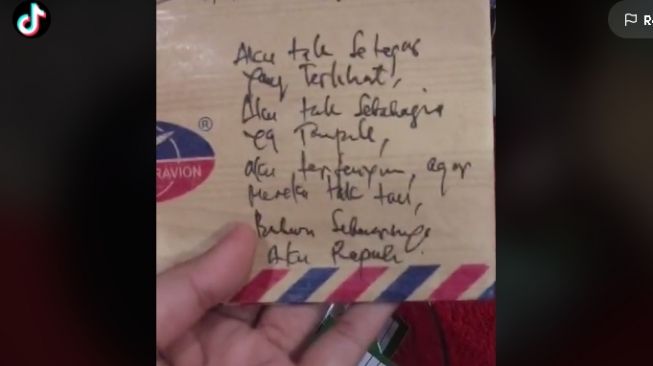 Re
Aku tak Setegar
yang Terlihat,
Aku tak Sebahagia
yg Tampak,
aku tersenyum, agar
mereka tak tau,
Bahwa Sebenarnya
Aku Rapuh.
®
RAVION